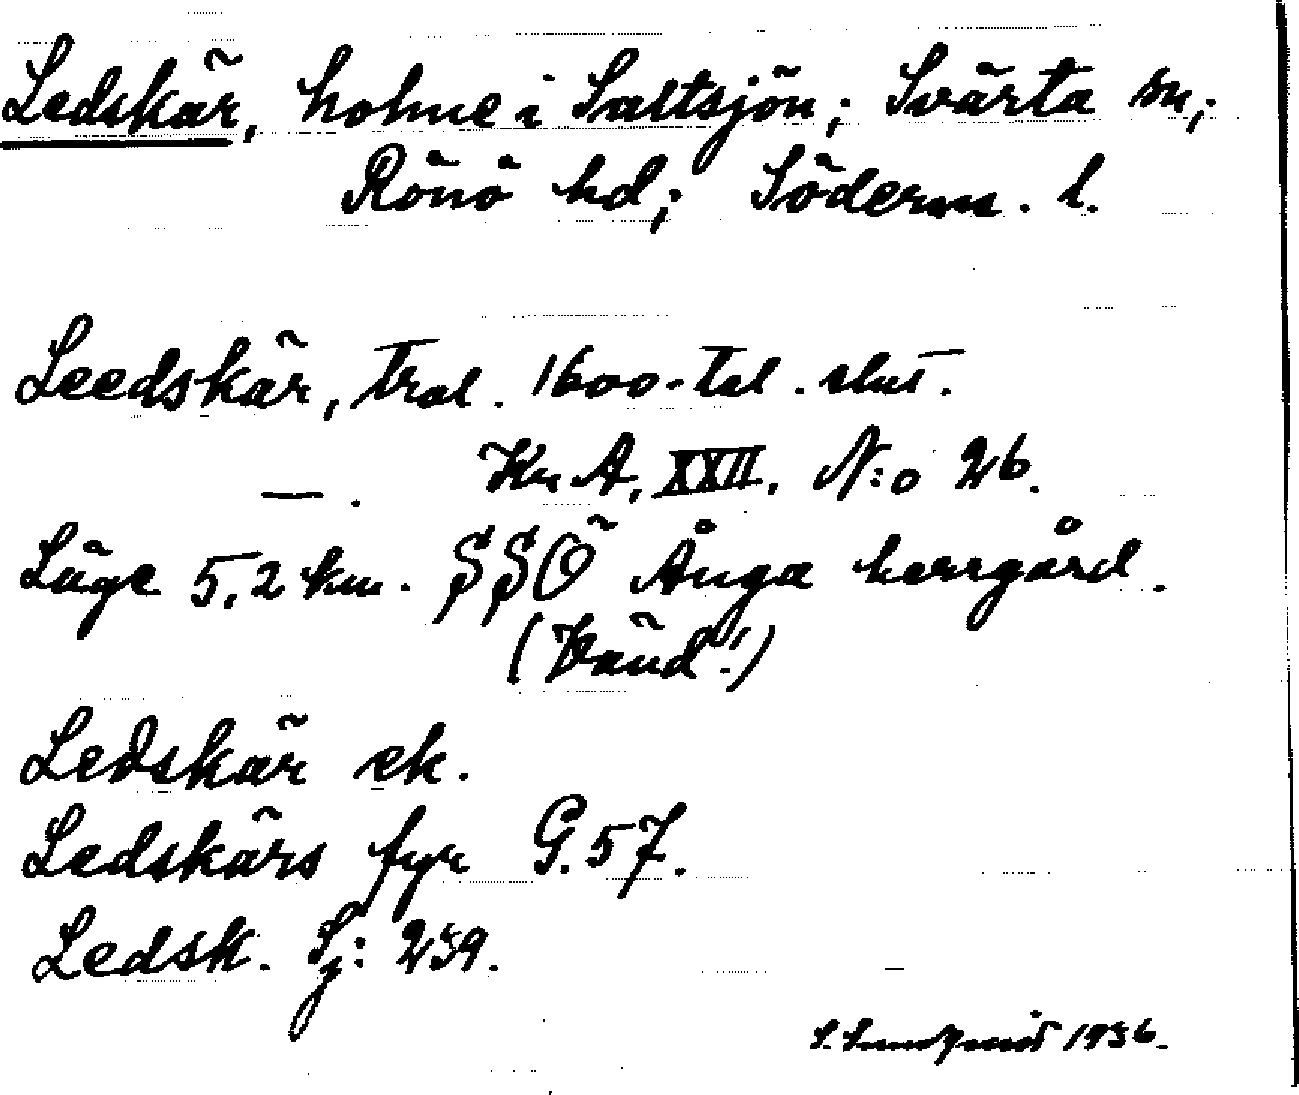 Ledskär, holme i Saltsjön; Svärta sn;
Rönö hd; Söderm. l.
Leedskär, trol. 1600-tal. slut.
— . Kr. A, XXII. N:o 26.
Läge 5,2 km. SSÖ Ånga herrgård.
(Vänd!)
Ledskär ek.
Ledskärs fyr G. 57.
Ledsk. Sj: 259.
S. Lundqvist 1936.